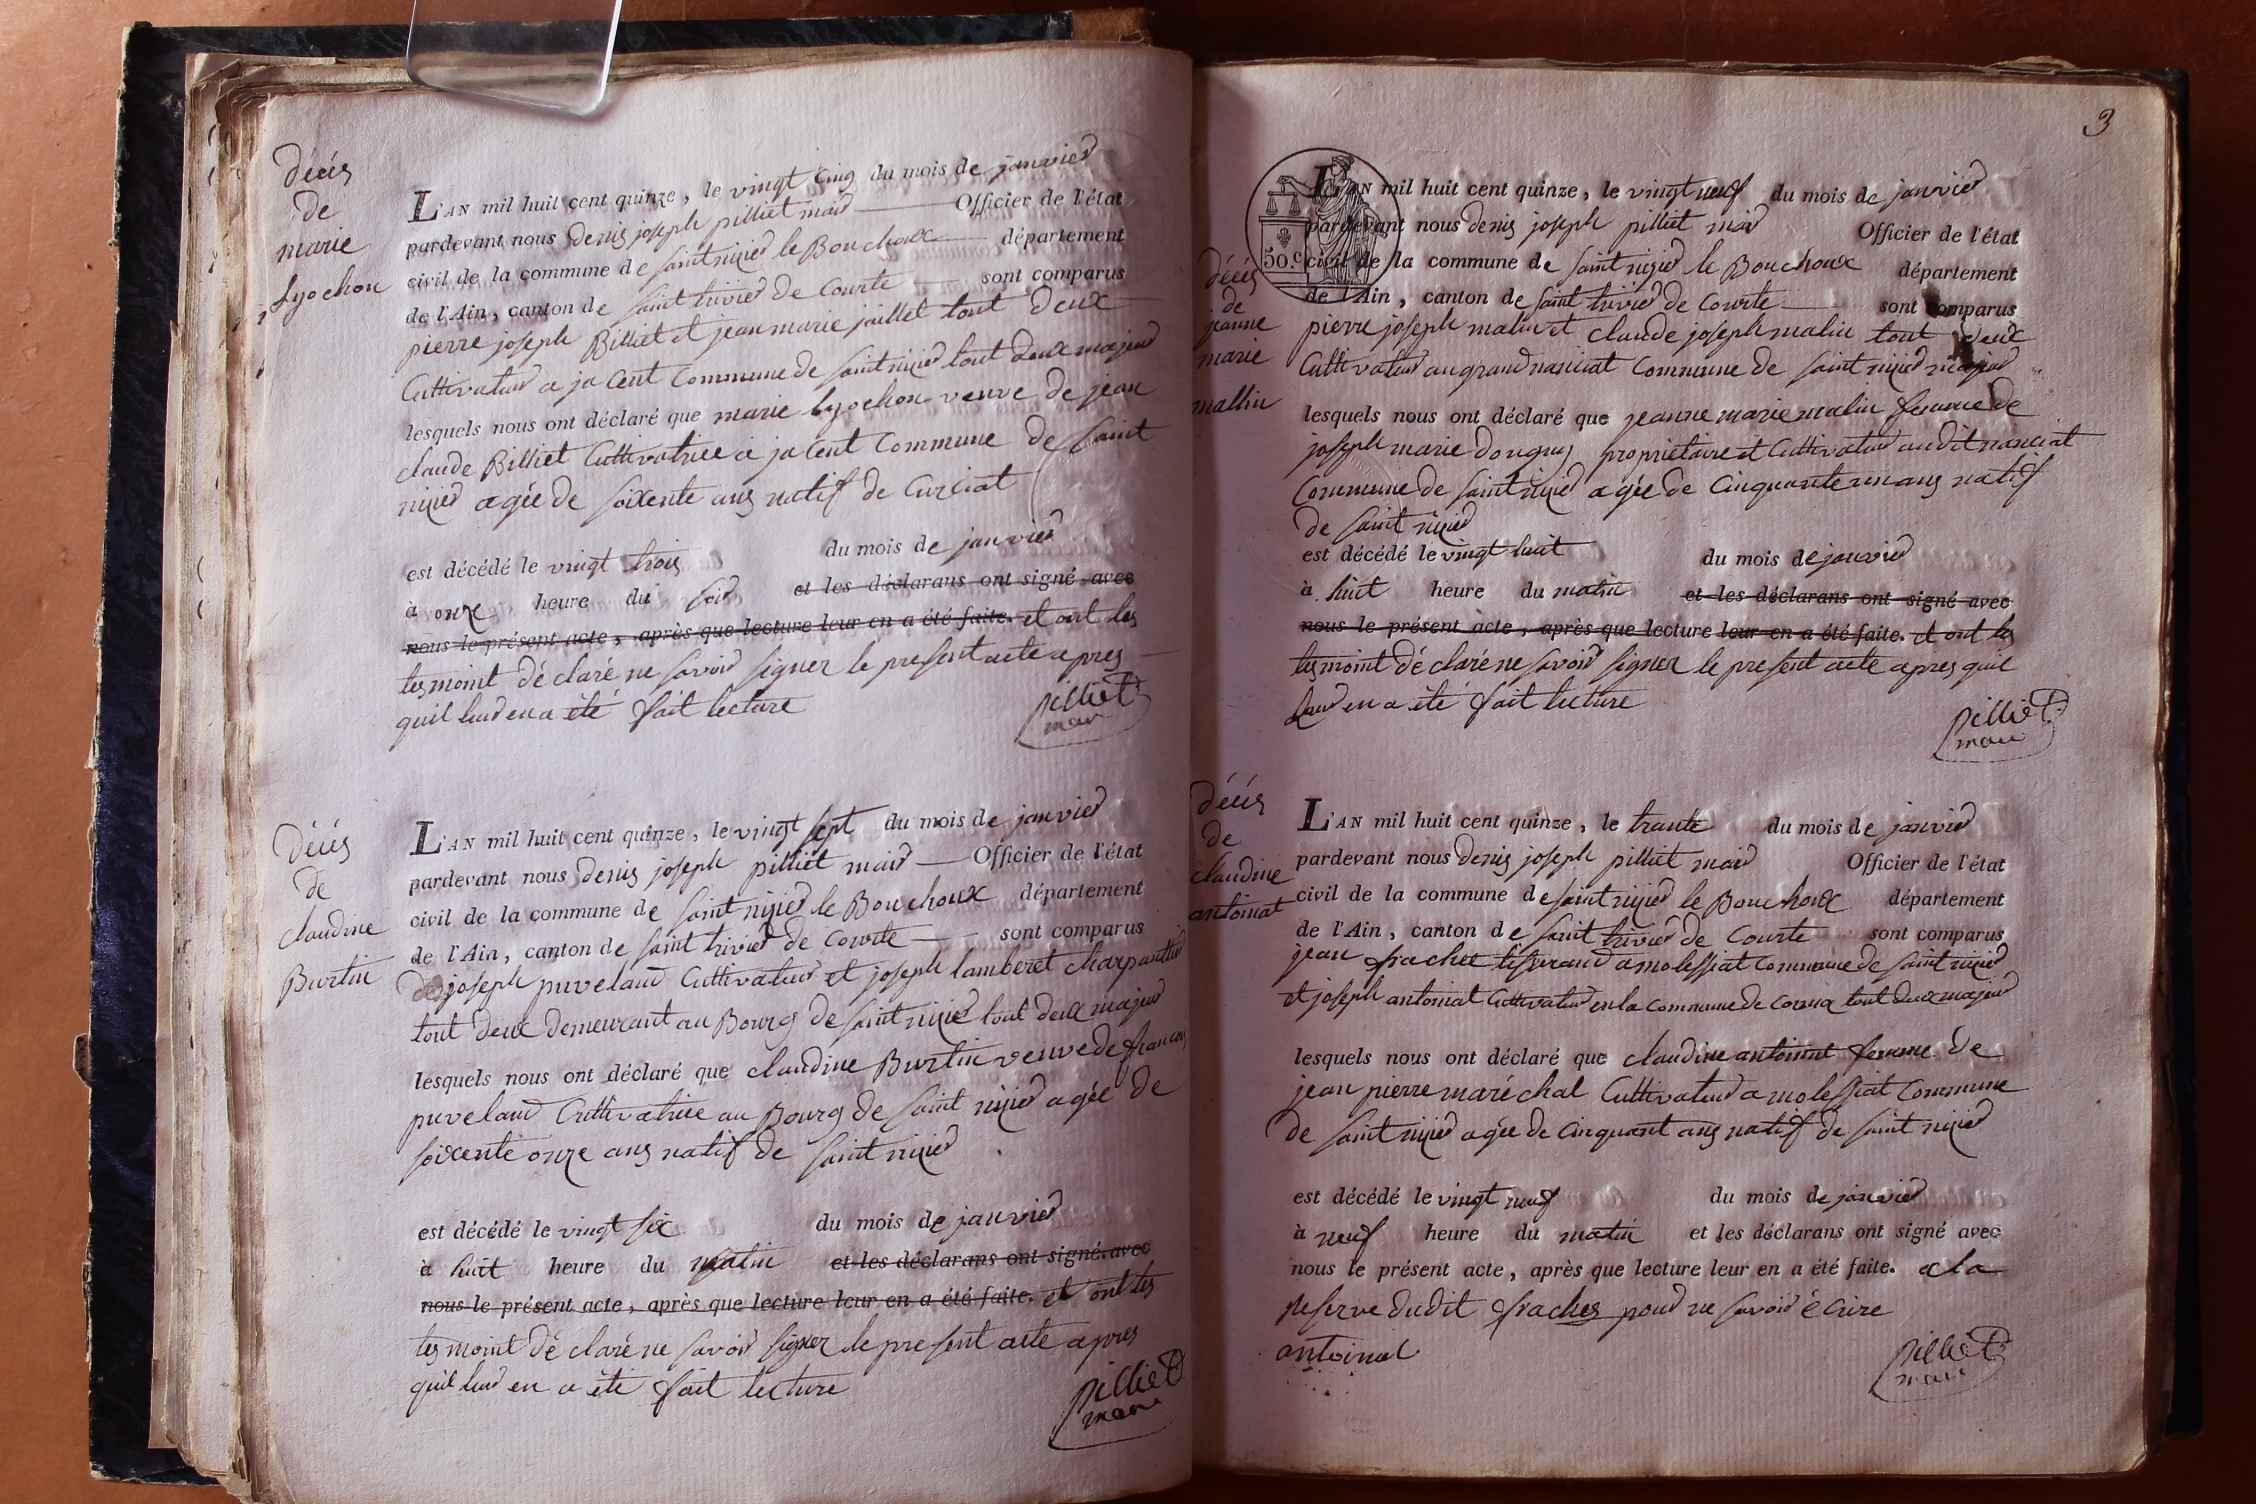 décés
de
marie
Lyochon
L'AN mil huit cent quinze, le vingt cinq du mois de janvier
pardevant nous denis joseph pilliet mair Officier de l'état
civil de la commune de saint nizier le Bouchoux département
de l'Ain, canton de saint trivier de Courte sont comparus
pierre joseph Billiet et jean marie jaillet tout deux
Cultivateur a ja Cent Commune de saint nizier tout deux majeur
lesquels nous ont déclaré que marie Lyochon veuve de jean
claude Billiet Cultivatrice a ja Cent Commune de saint
nizier agée de soixente ans natif de Curciat
est décédé le vingt trois du mois de janvier
à onze heure du soir et les déclarans ont signé avec
nous le présent acte, après que lecture leur en a été faite. et ont les
tesmoint déclaré ne savoir signer le present acte apres
quil leur en a été fait lecture
pilliet
mair
décés
de
claudine
Burtin
L'AN mil huit cent quinze, le vingt sept du mois de janvier
pardevant nous denis joseph pilliet mair Officier de l'état
civil de la commune de saint nizier le Bouchoux département
de l'Ain, canton de saint trivier de Courte sont comparus
joseph puveland Cultivateur et joseph lamberet charpantier
tout deux demeurant au Bourg de saint nizier tout deux majeur
lesquels nous ont déclaré que claudine Burtin veuve de francois
puveland Cultivatrice au Bourg de saint nizier agée de
soixente onze ans natif de saint nizier
est décédé le vingt six du mois de janvier
à huit heure du matin et les déclarans ont signé avec
nous le présent acte, après que lecture leur en a été faite. et ont les
tesmoint déclaré ne savoir signer le present acte apres
quil leur en a été fait lecture
pilliet
mair
3
50.c
décés
de
jeanne
marie
mallin
L'AN mil huit cent quinze, le vingt neuf du mois de janvier
pardevant nous denis joseph pilliet mair Officier de l'état
civil de la commune de saint nizier le Bouchoux département
de l'Ain, canton de saint trivier de Courte sont comparus
pierre joseph malin et claude joseph malin tout deux
Cultivateur au grand nanciat Commune de saint nizier majeur
lesquels nous ont déclaré que jeanne marie malin femme de
joseph marie donguy proprietaire et Cultivateur audit nanciat
Commune de saint nizier agée de Cinquante un ans natif
de saint nizier
est décédé le vingt huit du mois de janvier
à huit heure du matin et les déclarans ont signé avec
nous le présent acte, après que lecture leur en a été faite. et ont les
tesmoint déclaré ne savoir signer le present acte apres quil
leur en a été fait lecture
pilliet
mair
décés
de
claudine
antoinat
L'AN mil huit cent quinze, le trante du mois de janvier
pardevant nous denis joseph pilliet mair Officier de l'état
civil de la commune de saint nizier le Bouchoux département
de l'Ain, canton de saint trivier de Courte sont comparus
jean frachet tisserand a molessiat Commune de saint nizier
et joseph antoinat Cultivateur en la Commune de Cormoz tout deux majeur
lesquels nous ont déclaré que claudine antoinat femme de
jean pierre maréchal Cultivateur a molessiat Commune
de saint nizier agée de Cinquant ans natif de saint nizier
est décédé le vingt neuf du mois de janvier
à neuf heure du matin et les déclarans ont signé avec
nous le présent acte, après que lecture leur en a été faite. a la
reserve dudit frachet pour ne savoir écrire
antoinat
pilliet
mair